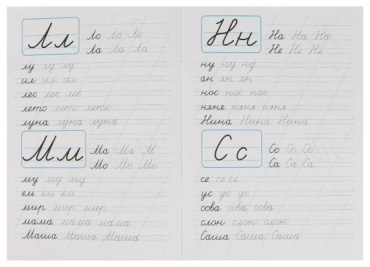 Лл
Ло Ло Ло
Ла Ла Ла
лу лу лу
ил ил ил
лес лес лес
лето лето лето
луна луна луна
Мм
Ма Ма М
Мо Мо Мо
му му му
ем ем ем
мир мир мир
мама мама мама
Маша Маша Маша
Нн
На На На
Не Не Не
ну ну ну
ан ан ан
нос нос нос
няня няня няня
Нина Нина Нина
Сс
Со Со Со
Са Са Са
се се се
ус ус ус
сова сова сова
слон слон слон
Саша Саша Саша